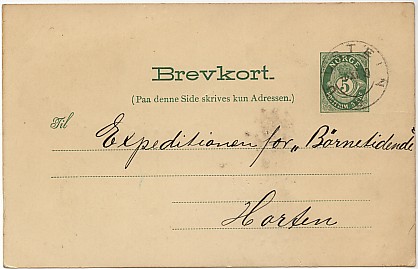 STEIN
NORGE
5
Brevkort.
(Paa denne Side skrives kun Adressen.)
Til
Expeditionen for „Børnetidende"
Horten